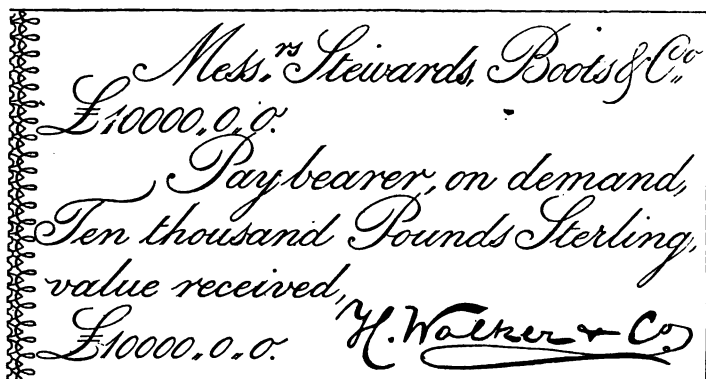 Mess.rs Stewards, Boots & Co.
£10000.,0.,0.
Pay bearer, on demand,
Ten thousand Pounds Sterling,
value received,
£10000.,0.,0.
H. Walker & Co.